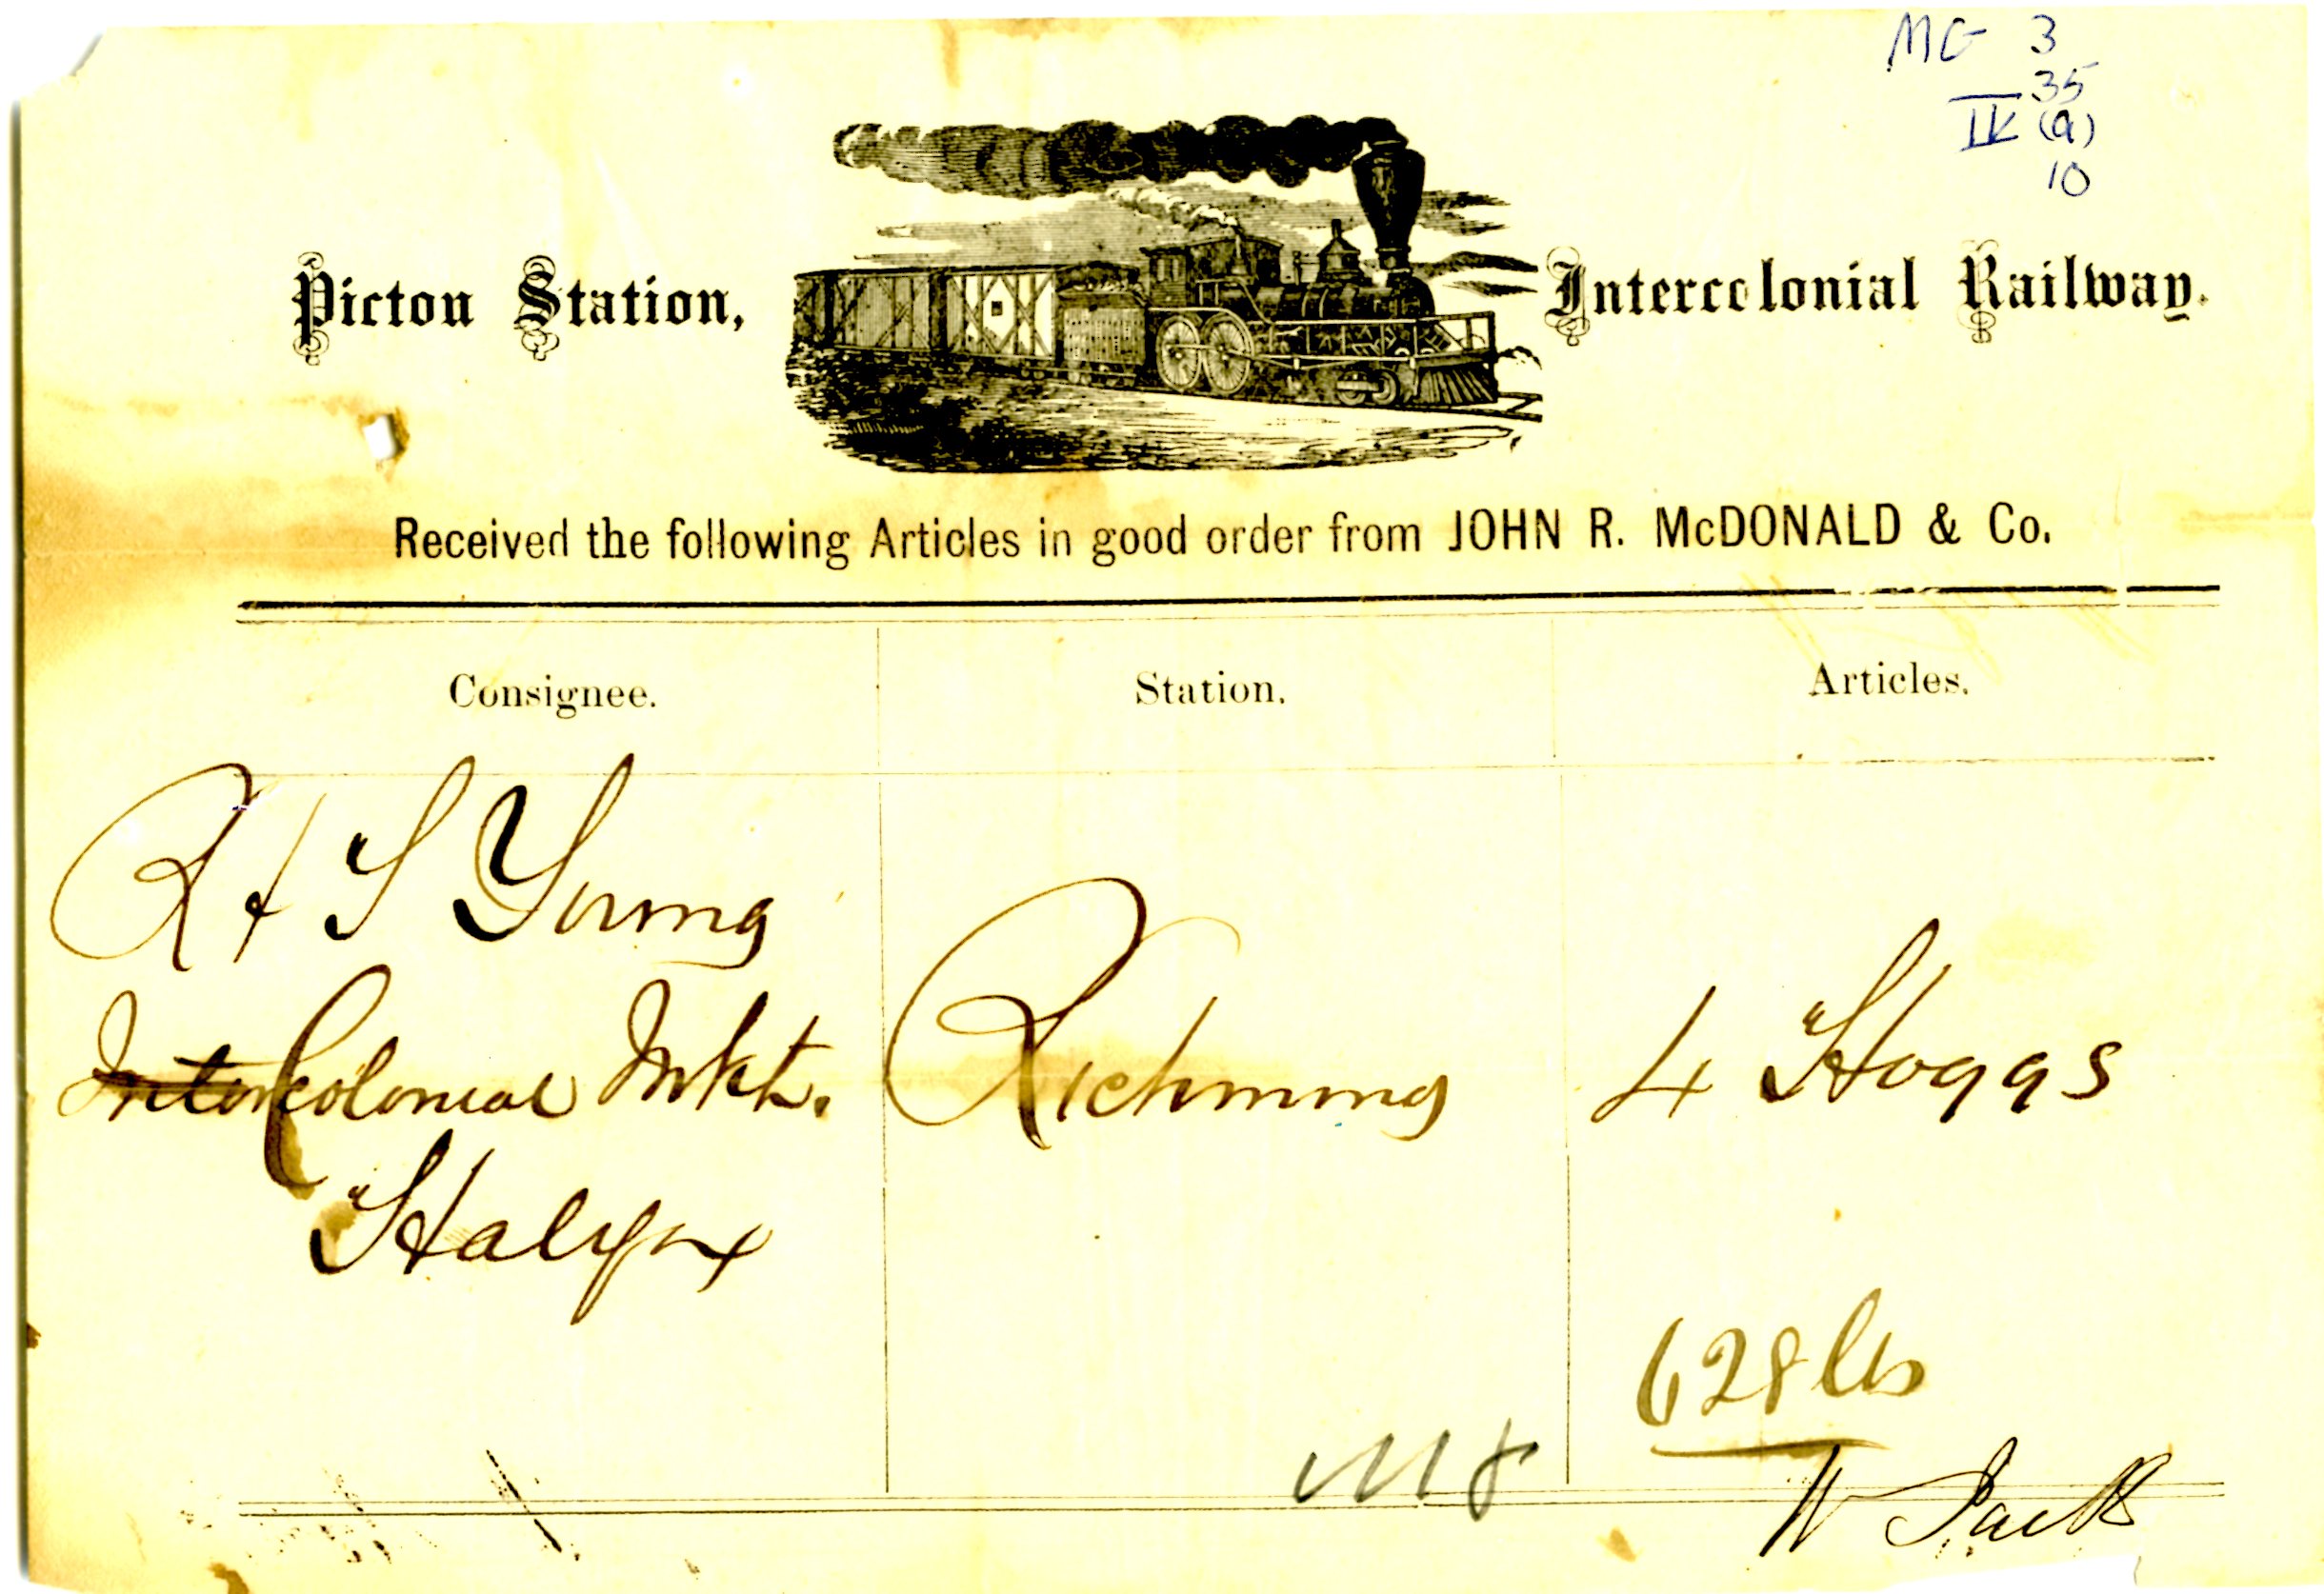 MG 3
35
IK (a)
10
Pictou Station, Intercolonial Railway.
Received the following Articles in good order from JOHN R. McDONALD & Co.
Consignee. Station. Articles.
R & S Young
Intercolonial Mkt.
Halifax
Richmond
4 Hoggs
628 lbs
W Jack